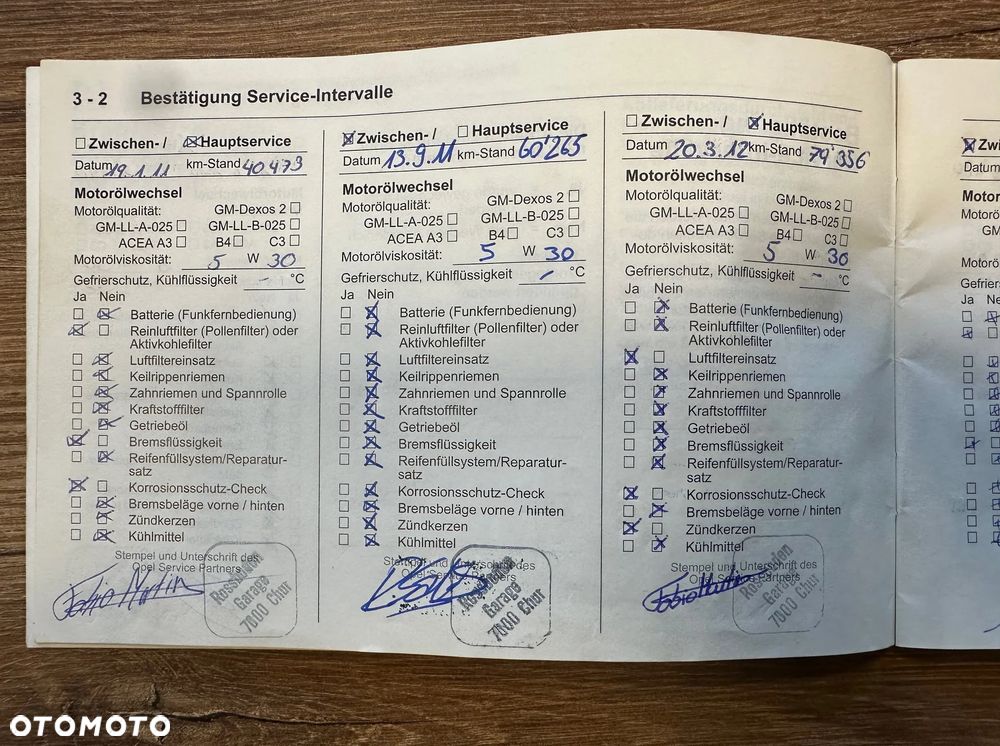 3 - 2 Bestätigung Service-Intervalle
☐ Zwischen- / ☒ Hauptservice
Datum 19.1.11 km-Stand 40'473
Motorölwechsel
Motorölqualität: GM-Dexos 2 ☐
GM-LL-A-025 ☐ GM-LL-B-025 ☐
ACEA A3 ☐ B4 ☐ C3 ☐
Motorölviskosität: 5 W 30
Gefrierschutz, Kühlflüssigkeit - °C
Ja Nein
☐ ☒ Batterie (Funkfernbedienung)
☒ ☐ Reinluftfilter (Pollenfilter) oder
Aktivkohlefilter
☐ ☒ Luftfiltereinsatz
☐ ☒ Keilrippenriemen
☐ ☒ Zahnriemen und Spannrolle
☐ ☒ Kraftstofffilter
☐ ☒ Getriebeöl
☒ ☐ Bremsflüssigkeit
☐ ☒ Reifenfüllsystem/Reparatur-
satz
☒ ☐ Korrosionsschutz-Check
☐ ☒ Bremsbeläge vorne / hinten
☐ ☒ Zündkerzen
☐ ☒ Kühlmittel
Stempel und Unterschrift des
Opel Service Partners
Garage
7000 Chur
☒ Zwischen- / ☐ Hauptservice
Datum 13.9.11 km-Stand 60'265
Motorölwechsel
Motorölqualität: GM-Dexos 2 ☐
GM-LL-A-025 ☐ GM-LL-B-025 ☐
ACEA A3 ☐ B4 ☐ C3 ☐
Motorölviskosität: 5 W 30
Gefrierschutz, Kühlflüssigkeit - °C
Ja Nein
☐ ☒ Batterie (Funkfernbedienung)
☐ ☒ Reinluftfilter (Pollenfilter) oder
Aktivkohlefilter
☐ ☒ Luftfiltereinsatz
☐ ☒ Keilrippenriemen
☐ ☒ Zahnriemen und Spannrolle
☐ ☒ Kraftstofffilter
☐ ☒ Getriebeöl
☐ ☒ Bremsflüssigkeit
☐ ☒ Reifenfüllsystem/Reparatur-
satz
☐ ☒ Korrosionsschutz-Check
☐ ☒ Bremsbeläge vorne / hinten
☐ ☒ Zündkerzen
☐ ☒ Kühlmittel
Stempel und Unterschrift des
Opel Service Partners
Garage
7000 Chur
☐ Zwischen- / ☒ Hauptservice
Datum 20.3.12 km-Stand 79'356
Motorölwechsel
Motorölqualität: GM-Dexos 2 ☐
GM-LL-A-025 ☐ GM-LL-B-025 ☐
ACEA A3 ☐ B4 ☐ C3 ☐
Motorölviskosität: 5 W 30
Gefrierschutz, Kühlflüssigkeit - °C
Ja Nein
☐ ☒ Batterie (Funkfernbedienung)
☐ ☒ Reinluftfilter (Pollenfilter) oder
Aktivkohlefilter
☒ ☐ Luftfiltereinsatz
☐ ☒ Keilrippenriemen
☐ ☒ Zahnriemen und Spannrolle
☐ ☒ Kraftstofffilter
☐ ☒ Getriebeöl
☐ ☒ Bremsflüssigkeit
☐ ☒ Reifenfüllsystem/Reparatur-
satz
☒ ☐ Korrosionsschutz-Check
☐ ☒ Bremsbeläge vorne / hinten
☒ ☐ Zündkerzen
☐ ☒ Kühlmittel
Stempel und Unterschrift des
Opel Service Partners
Garage
7000 Chur
Datum
Ja Ne
OTOMOTO